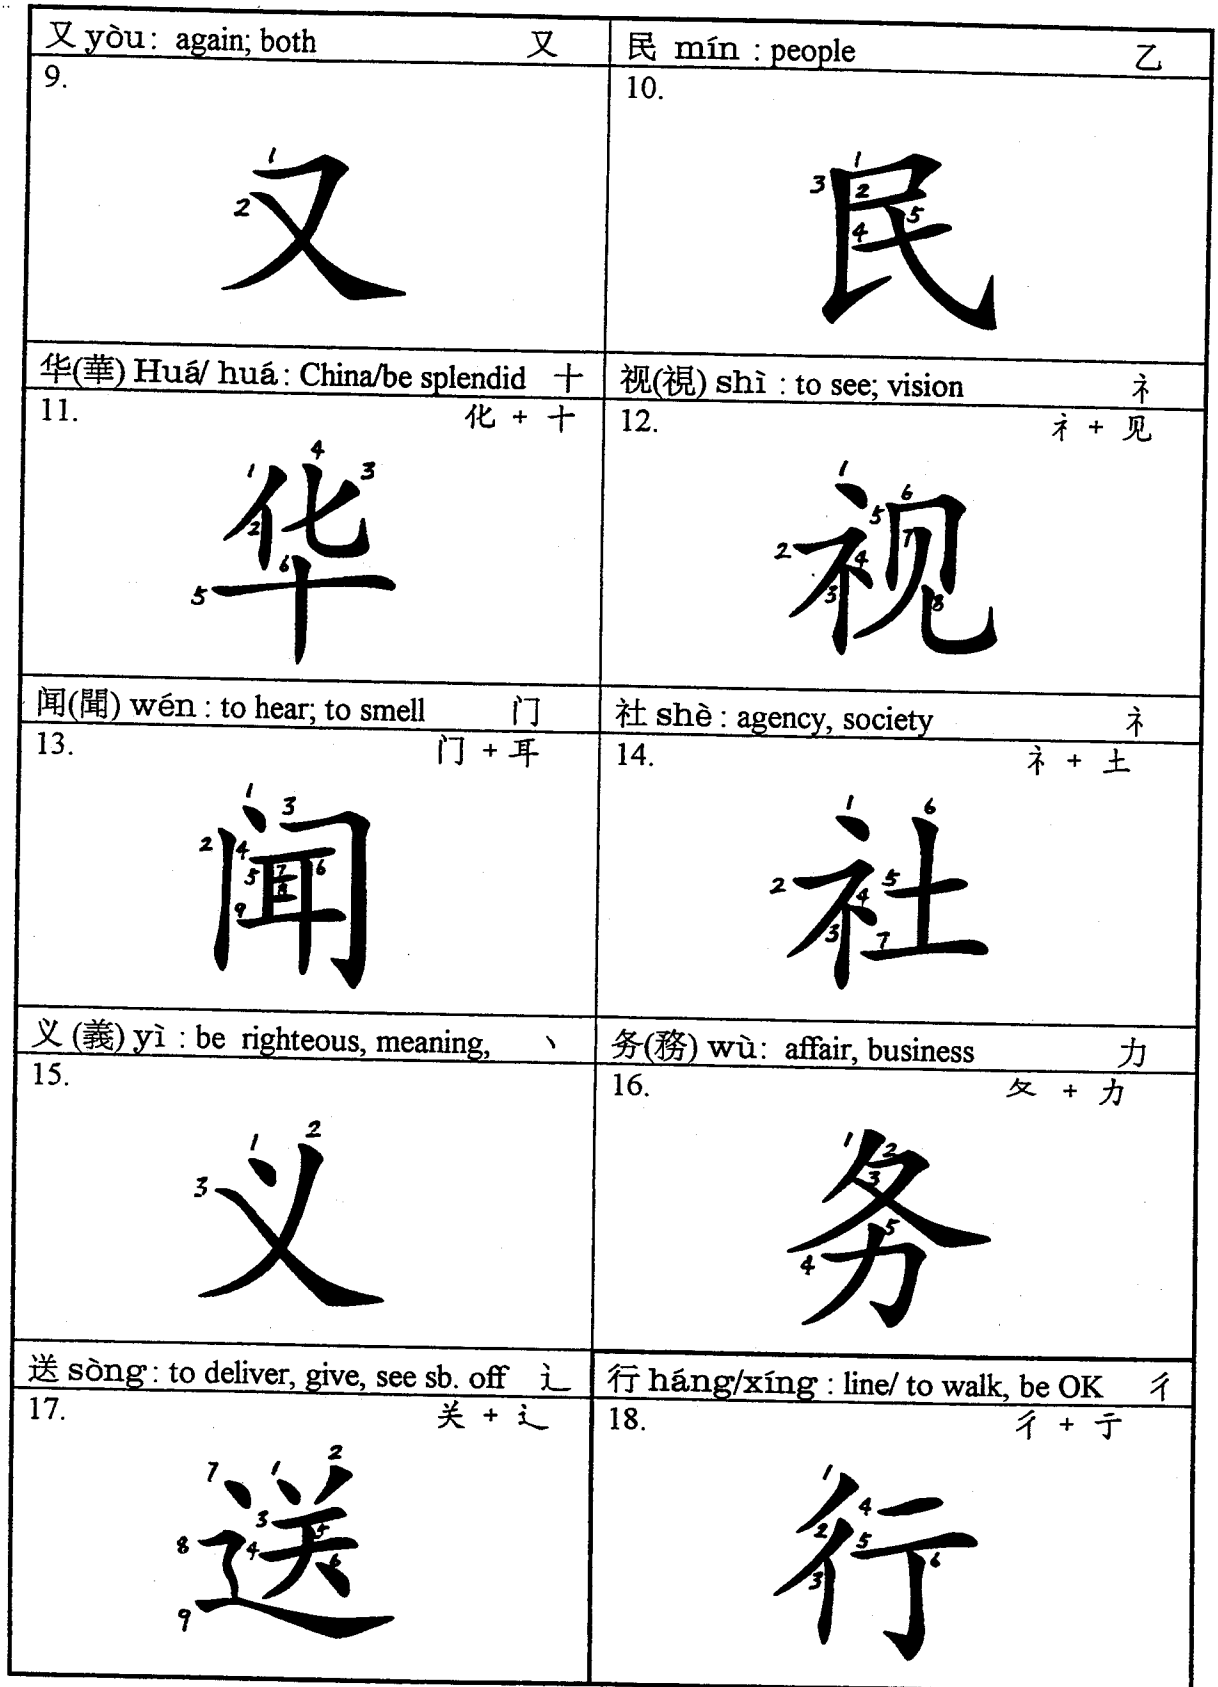 又 yòu: again; both 又
9.
又
1
2
民 mín : people 乙
10.
民
1
2
3
4
5
华(華) Huá/ huá: China/be splendid 十
11. 化 + 十
华
1
2
3
4
5
6
视(視) shì : to see; vision 礻
12. 礻 + 见
视
1
2
3
4
5
6
7
8
闻(聞) wén : to hear; to smell 门
13. 门 + 耳
闻
1
2
3
4
5
6
7
8
9
社 shè : agency, society 礻
14. 礻 + 土
社
1
2
3
4
5
6
7
义 (義) yì : be righteous, meaning, 丶
15.
义
1
2
3
务(務) wù: affair, business 力
16. 夂 + 力
务
1
2
3
4
5
送 sòng: to deliver, give, see sb. off 辶
17. 关 + 辶
送
1
2
3
4
5
6
7
8
9
行 háng/xíng : line/ to walk, be OK 彳
18. 彳 + 亍
行
1
2
3
4
5
6